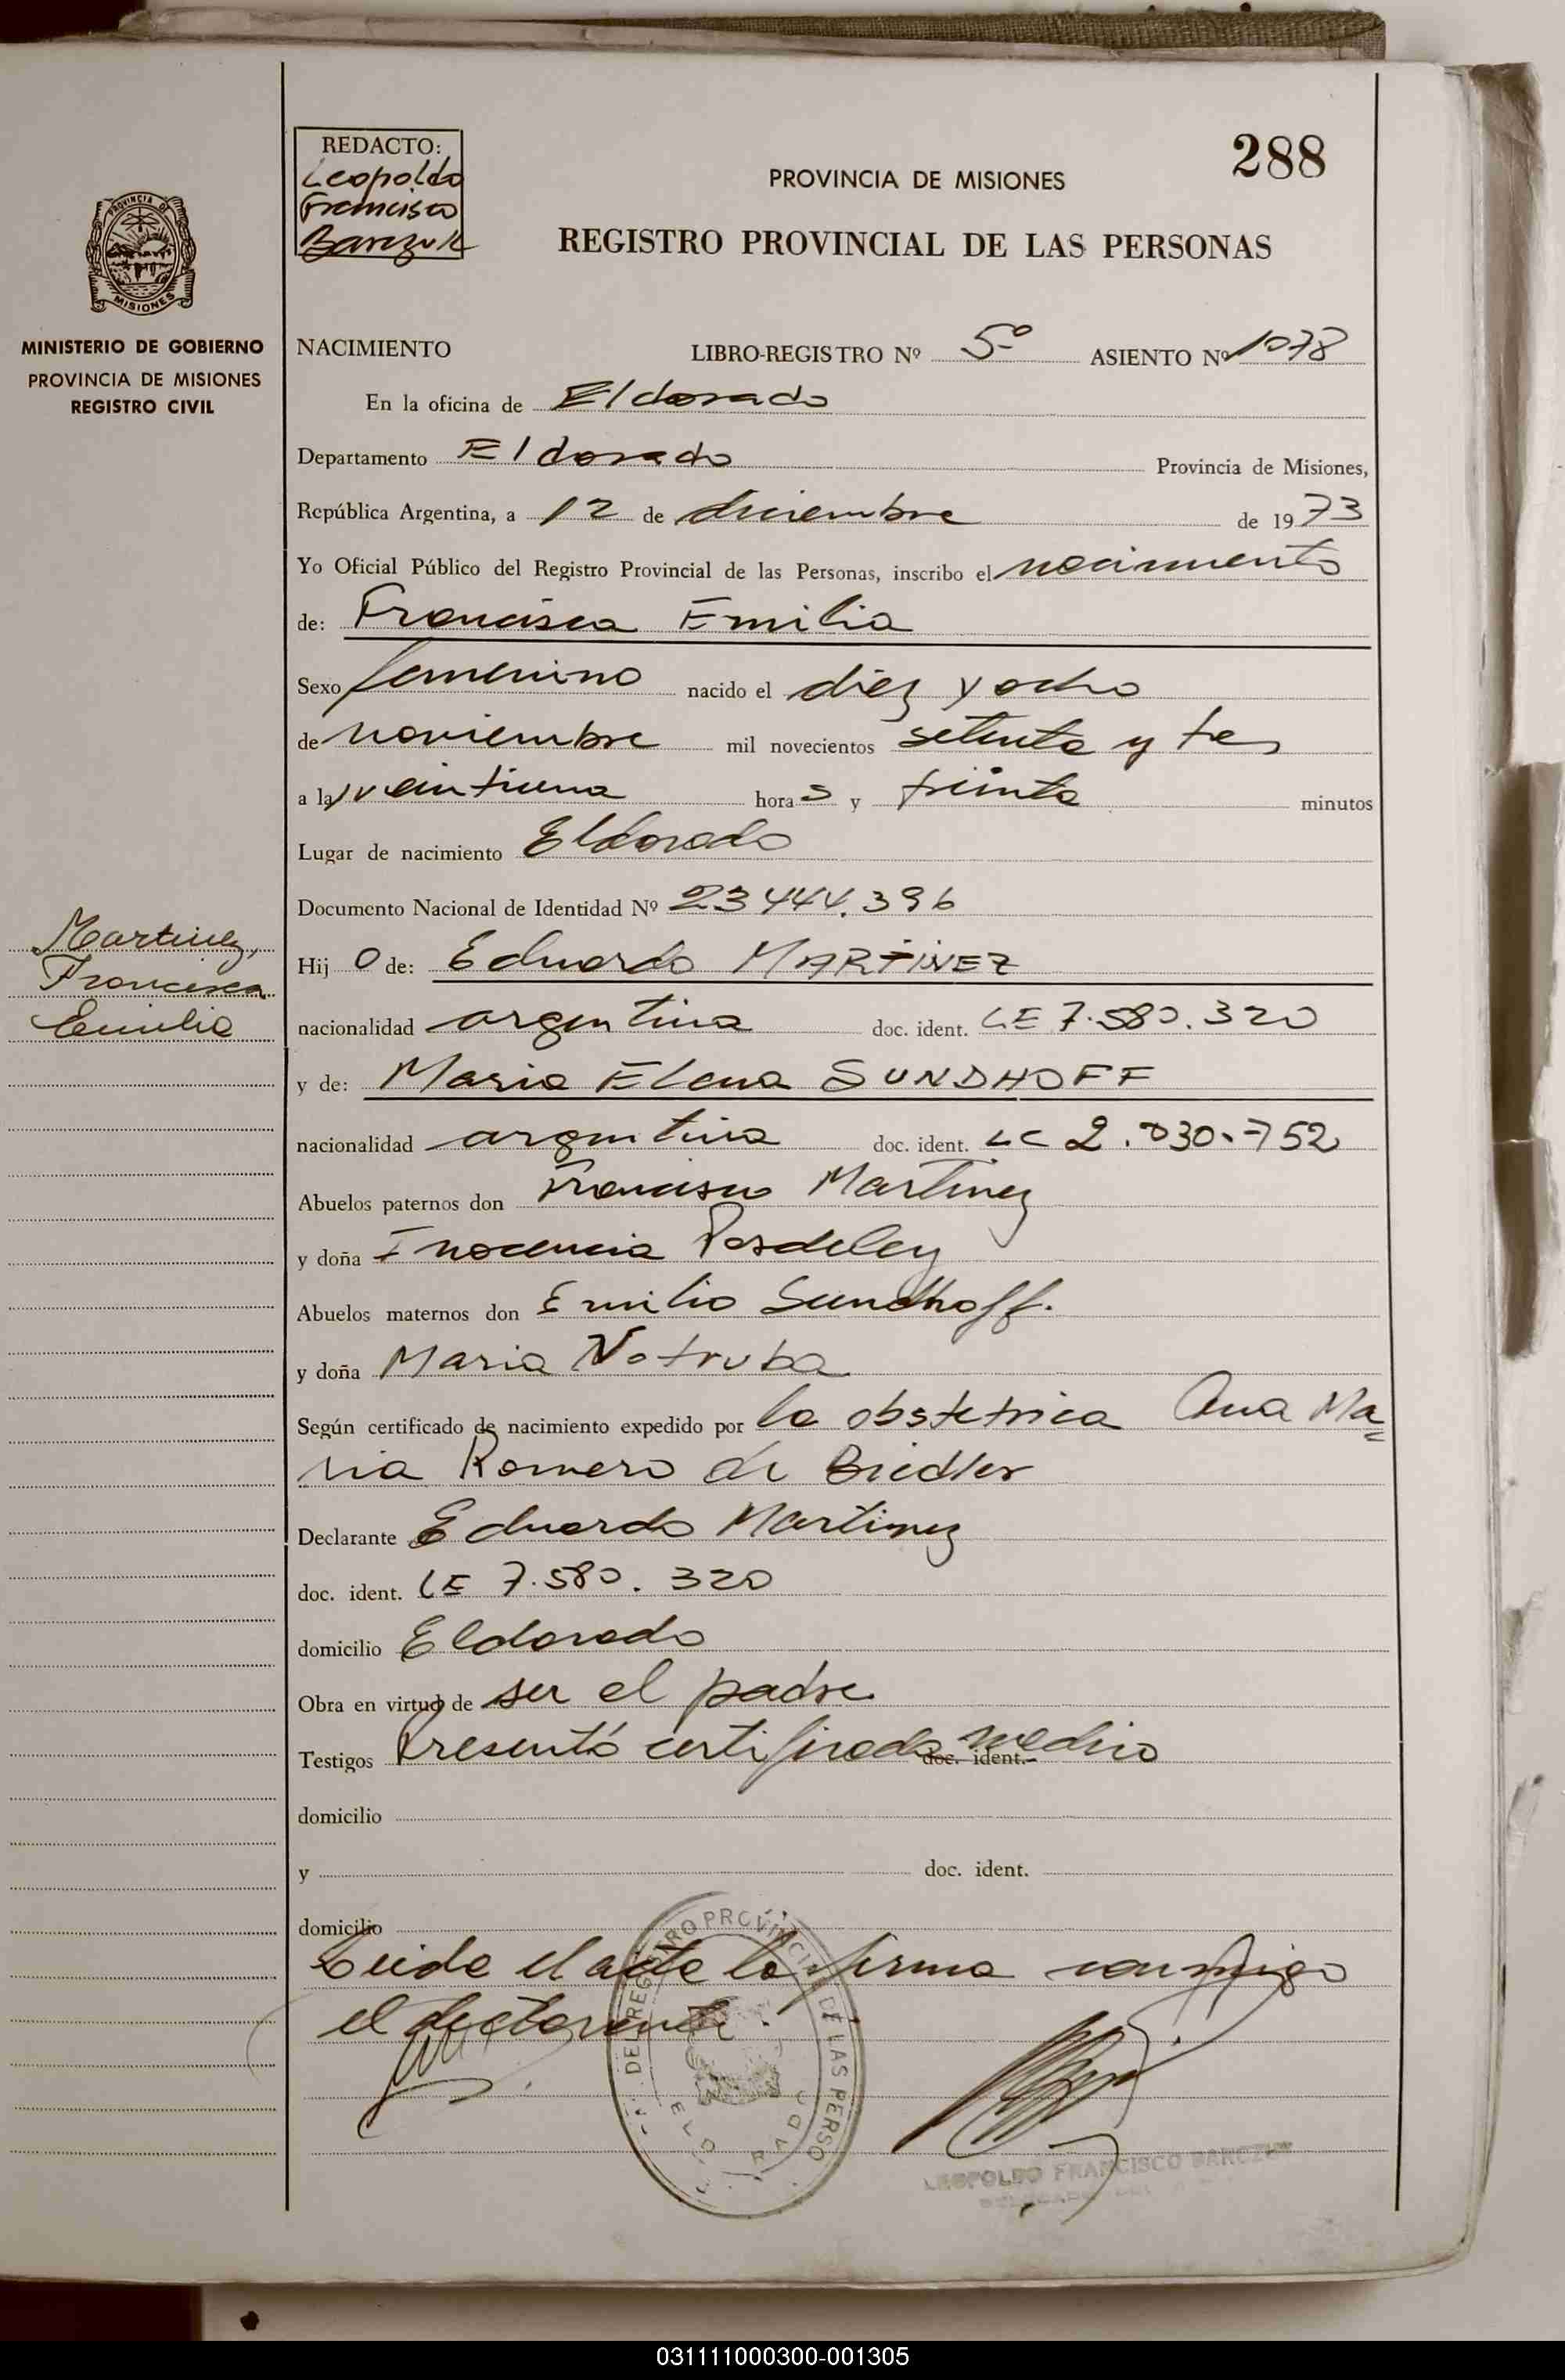 REDACTO:
Leopoldo
Francisco
Barczuk
288
PROVINCIA DE MISIONES
REGISTRO PROVINCIAL DE LAS PERSONAS
PROVINCIA DE
MISIONES
MINISTERIO DE GOBIERNO
PROVINCIA DE MISIONES
REGISTRO CIVIL
NACIMIENTO LIBRO-REGISTRO Nº 5º ASIENTO Nº 1078
En la oficina de Eldorado
Departamento Eldorado Provincia de Misiones,
República Argentina, a 12 de diciembre de 1973
Yo Oficial Público del Registro Provincial de las Personas, inscribo el nacimiento
de: Francisca Emilia
Sexo femenino nacido el diez y ocho
de noviembre mil novecientos setenta y tes
a la veintiuna hora s y treinta minutos
Lugar de nacimiento Eldorado
Documento Nacional de Identidad Nº 23444.396
Martinez,
Francisca
Emilia
Hij o de: Eduardo MARTINEZ
nacionalidad argentina doc. ident. LE 7.580.320
y de: Maria Elena SUNDHOFF
nacionalidad argentina doc. ident. LC 2.030.752
Abuelos paternos don Francisco Martinez
y doña Inocencia
Abuelos maternos don Emilio Sundhoff.
y doña Maria Notruba
Según certificado de nacimiento expedido por la obstetrica Ana Ma=
ria Romero de Biedler
Declarante Eduardo Martinez
doc. ident. LE 7.580.320
domicilio Eldorado
Obra en virtud de ser el padre
Testigos Presentó certificado medico doc. ident.
domicilio
y doc. ident.
domicilio
Leida el acta la firma conmigo
el declarante.
DEL REGISTRO PROVINCIAL DE LAS PERSO
ELDORADO
LEOPOLDO FRANCISCO BARCZUK
031111000300-001305